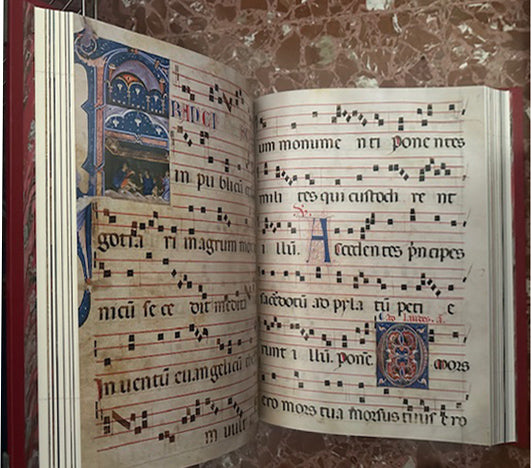 RIDEI
in publicũ
gotia ri in agrum mor
meũ se ce dit medita
In uentũ euangelicũ
in uult
um monume nti ponentes
mili tes qui custodi re nt
illũ. A scedentes pncipes
sacedotũ ad pyla tũ peti e
runt i llũ. ponẽ.
Ad laudes. a.
O mors
ero mors tua morsus tuus ero